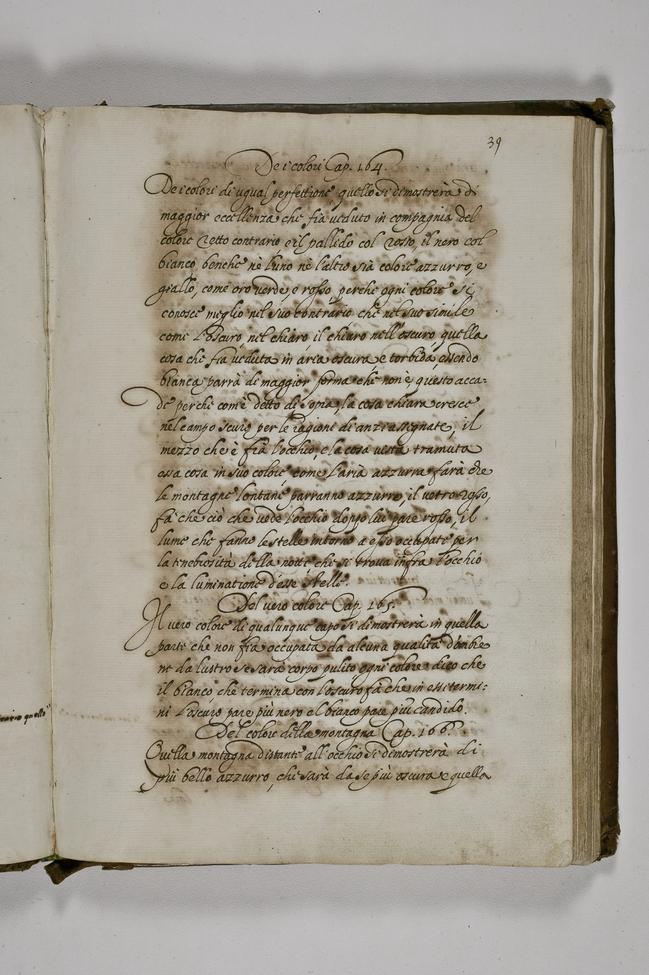 39
De i colori Cap. 164.
De i colori di ugual perfettione quello si dimostrerà di
maggior eccellenza che fia veduto in compagnia del
colore retto contrario e il pallido col rosso, il nero col
bianco, benche nè l'uno nè l'altro sia colore azzurro, e
giallo, come oro verde, e rosso, perche ogni colore si
conosce meglio nel suo contrario che nel suo simile
come l'oscuro nel chiaro, il chiaro nell'oscuro, quella
cosa che fia veduta in aria oscura e torbida, essendo
bianca parrà di maggior forma che non è, questo acca-
de perche come è detto di sopra, la cosa chiara cresce
nel campo scuro per le ragioni dianzi assegnate, il
mezzo che è fra l'occhio, e la cosa vista tramuta
essa cosa in suo colore, come l'aria azzurra farà che
le montagne lontane parranno azzurre, il vetro rosso,
fà che ciò che vede l'occhio doppo lui pare rosso, il
lume che fanno le stelle intorno a esso occupate per
la tenebrosità della notte che si trova infra l'occhio
e la luminatione d'esse stelle.
Del vero colore Cap. 165.
Il vero colore di qualunque capo si dimostrerà in quella
parte che non fia occupata da alcuna qualità d'ombre
ne da lustro se sarà corpo pulito ogni colore dico che
il bianco che termina con l'oscuro fà che in essi termi-
ni l'oscuro pare più nero el bianco pare più candido.
Del colore della montagna Cap. 166.
Quella montagna distante all'occhio si dimostrerà di
più bello azzurro, che sarà da se più oscura e quella
quello